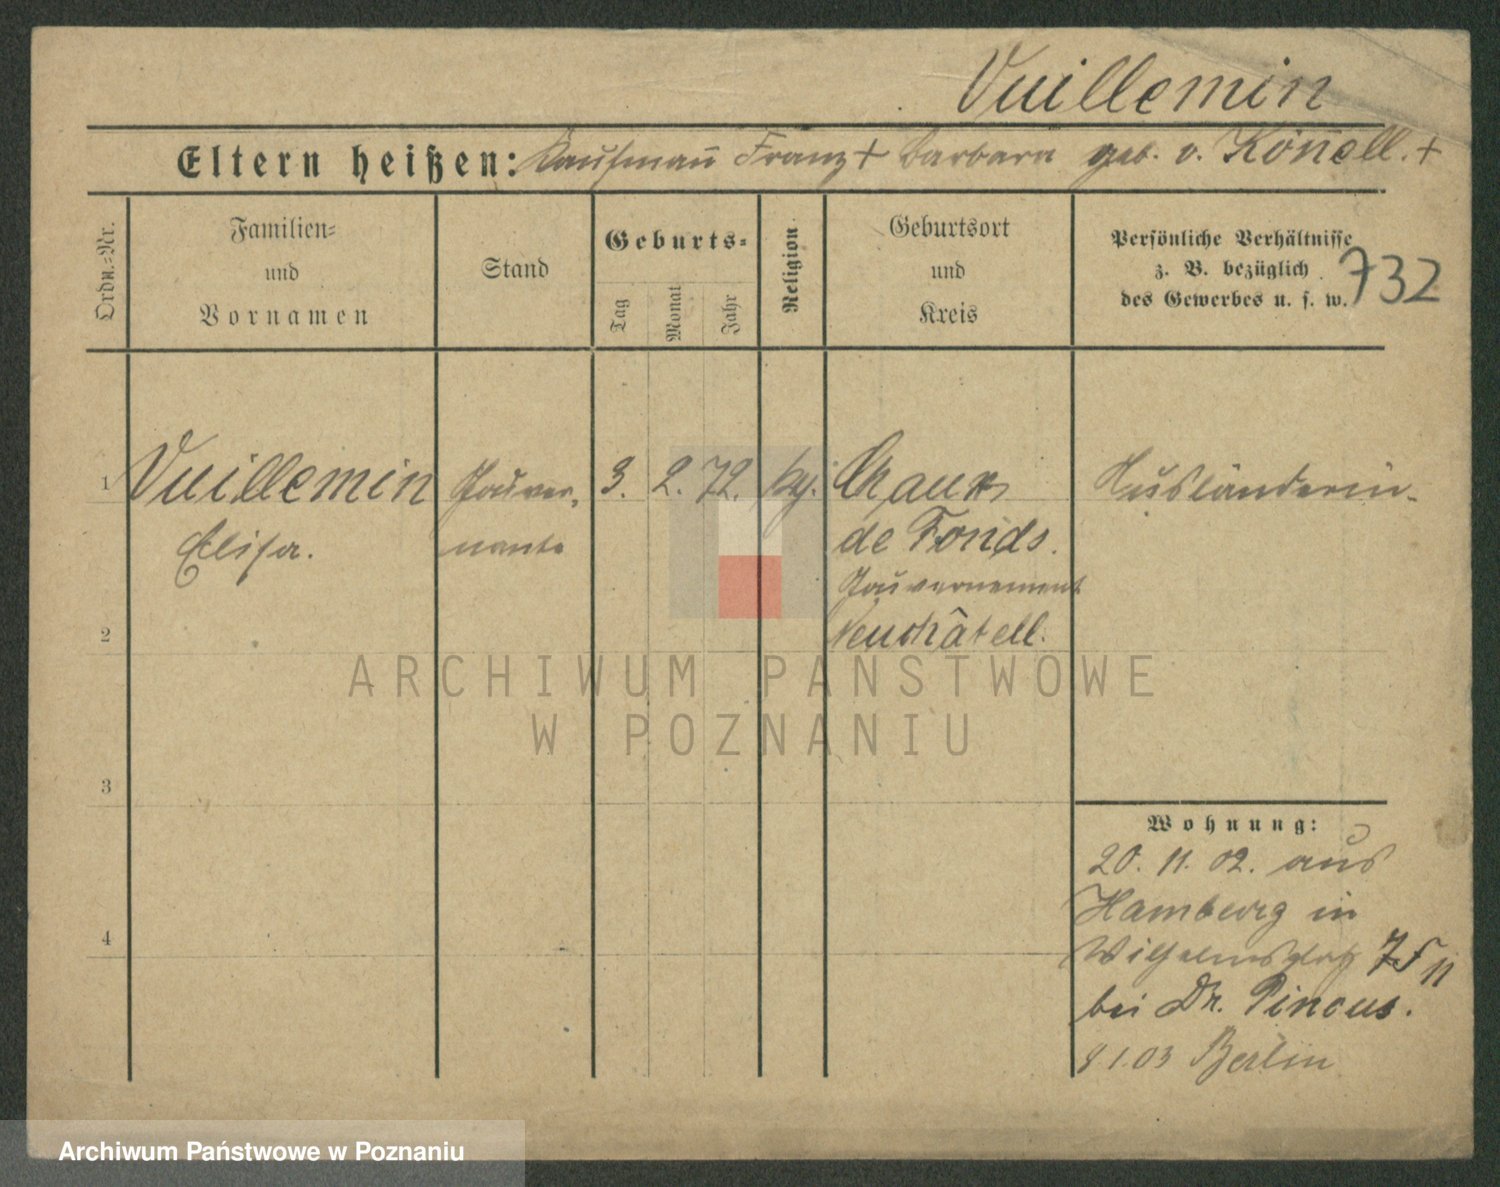 Vuillemin
Eltern heißen: Kaufmann̄ Franz + Barbara geb. v. Kön̄ell. +
Ordn.-Nr.
Familien-
und
Vornamen
Stand
Geburts-
Tag
Monat
Jahr
Religion
Geburtsort
und
Kreis
Persönliche Verhältnisse
z. B. bezüglich
des Gewerbes u. s. w.
732
1 Vuillemin Gouver- 3. 2. 72. Chaux Ausländerin.
Elisa. nante de Fonds.
Gouvernement
Neuchâtell.
2
3
4
Wohnung:
20. 11. 02. aus
Hamburg in
Wilhelmsplatz 7 II
bei Dr. Pincus.
8 1.03 Berlin
ARCHIWUM PAŃSTWOWE
W POZNANIU
Archiwum Państwowe w Poznaniu